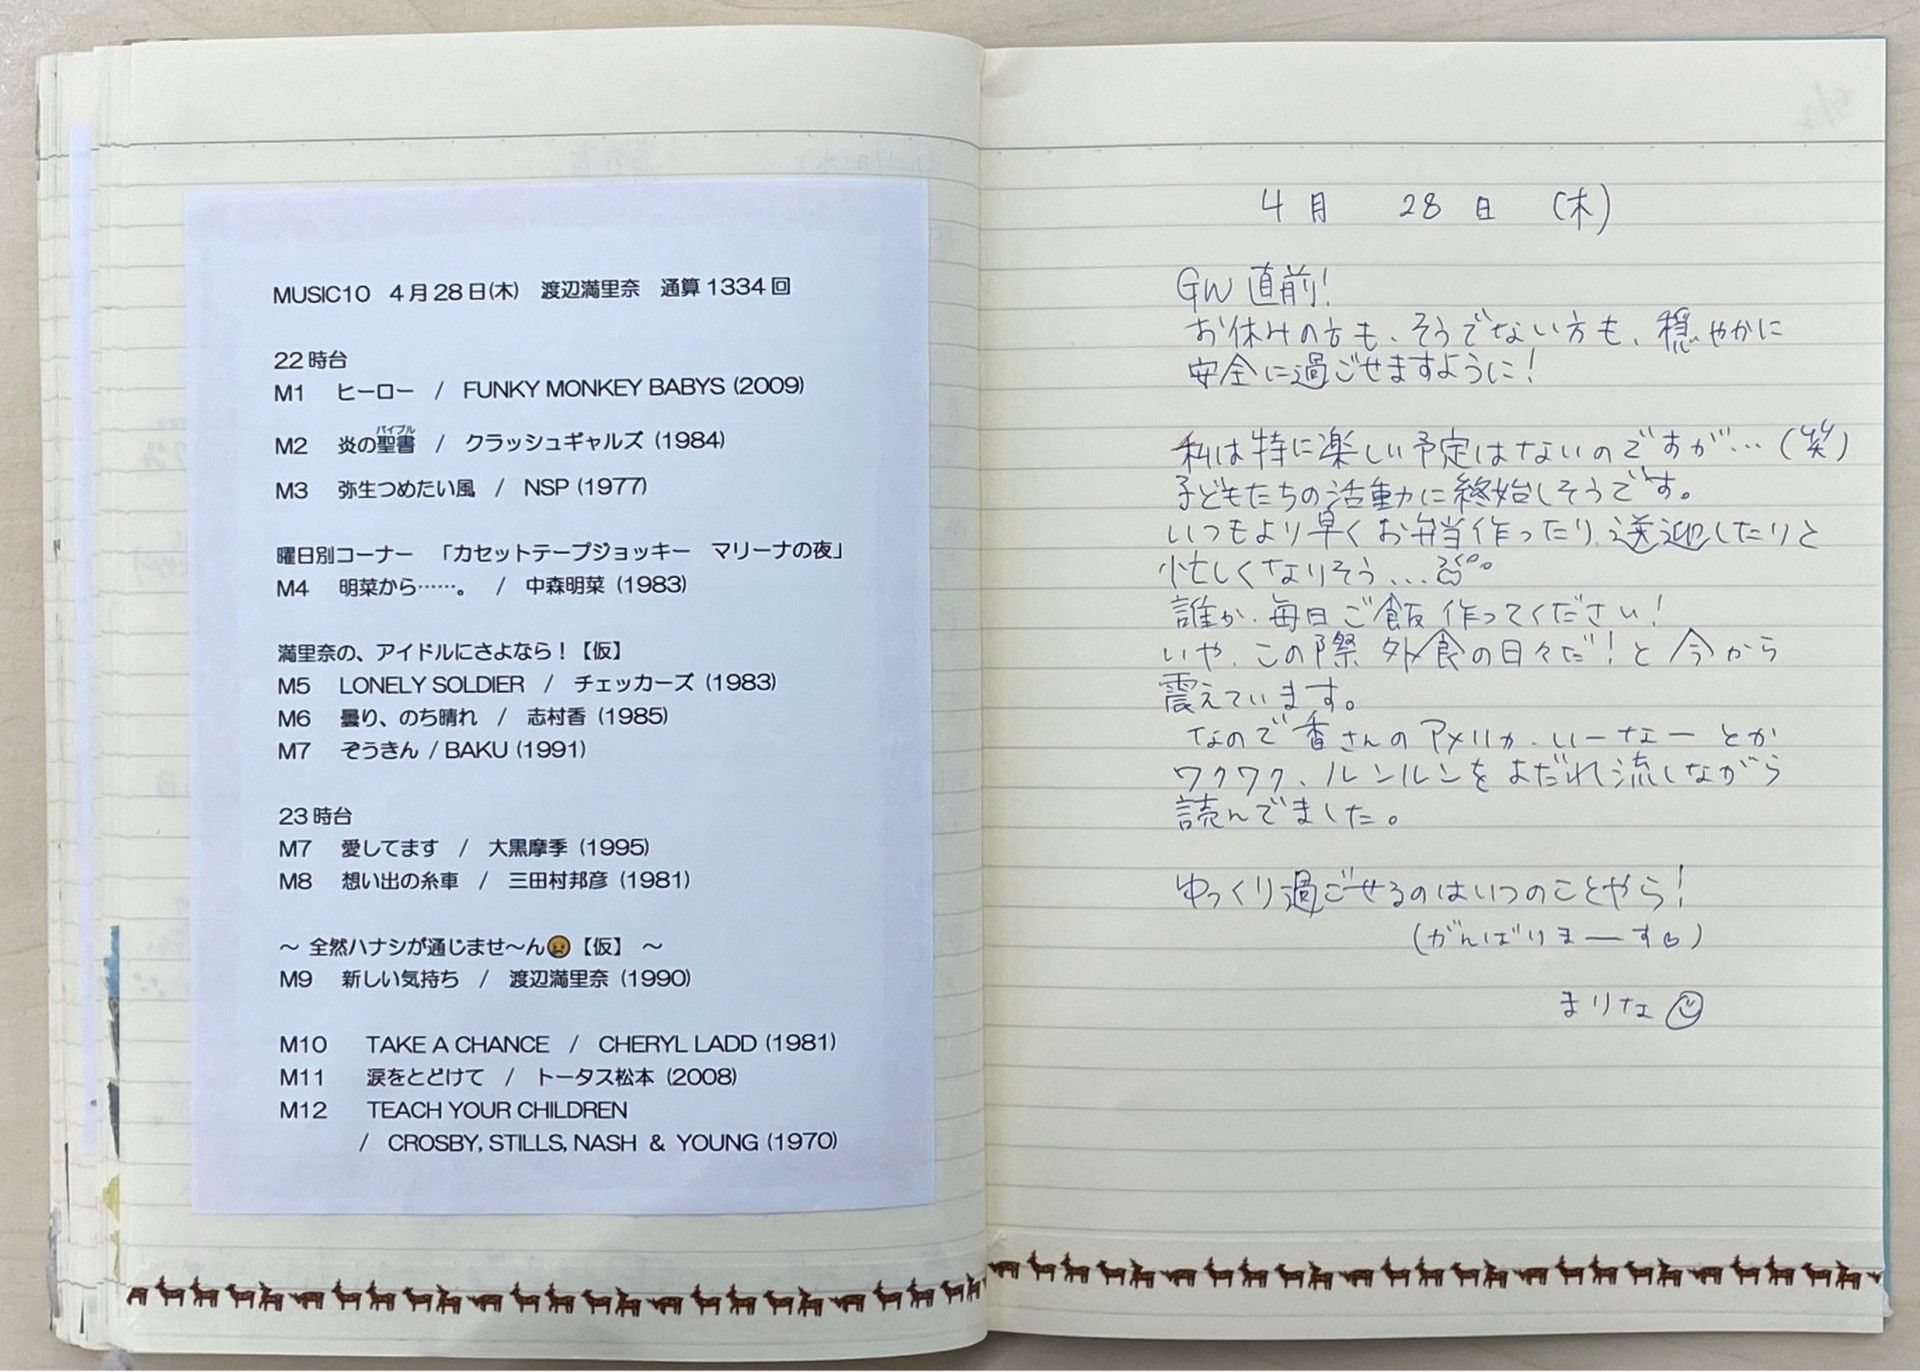 MUSIC10 4月28日(木) 渡辺満里奈 通算1334回
22時台
M1 ヒーロー / FUNKY MONKEY BABYS (2009)
M2 炎の聖書(バイブル) / クラッシュギャルズ (1984)
M3 弥生つめたい風 / NSP (1977)
曜日別コーナー 「カセットテープジョッキー マリーナの夜」
M4 明菜から……。 / 中森明菜 (1983)
満里奈の、アイドルにさよなら!【仮】
M5 LONELY SOLDIER / チェッカーズ (1983)
M6 曇り、のち晴れ / 志村香 (1985)
M7 ぞうきん / BAKU (1991)
23時台
M7 愛してます / 大黒摩季 (1995)
M8 想い出の糸車 / 三田村邦彦 (1981)
~ 全然ハナシが通じませ~ん😣【仮】 ~
M9 新しい気持ち / 渡辺満里奈 (1990)
M10 TAKE A CHANCE / CHERYL LADD (1981)
M11 涙をとどけて / トータス松本 (2008)
M12 TEACH YOUR CHILDREN
/ CROSBY, STILLS, NASH & YOUNG (1970)
4月 28日 (木)
GW 直前!
お休みの方も、そうでない方も、穏やかに
安全に過ごせますように!
私は特に楽しい予定はないのですが…(笑)
子どもたちの活動に終始しそうです。
いつもより早くお弁当作ったり、送迎したりと
忙しくなりそう…
誰か、毎日ご飯作ってください!
いや、この際 外食の日々だ!と今から
震えています。
なので香さんのアメリカ、いーなー とか
ワクワク、ルンルンをよだれ流しながら
読んでました。
ゆっくり過ごせるのはいつのことやら!
(がんばりまーす♡)
まりな☺